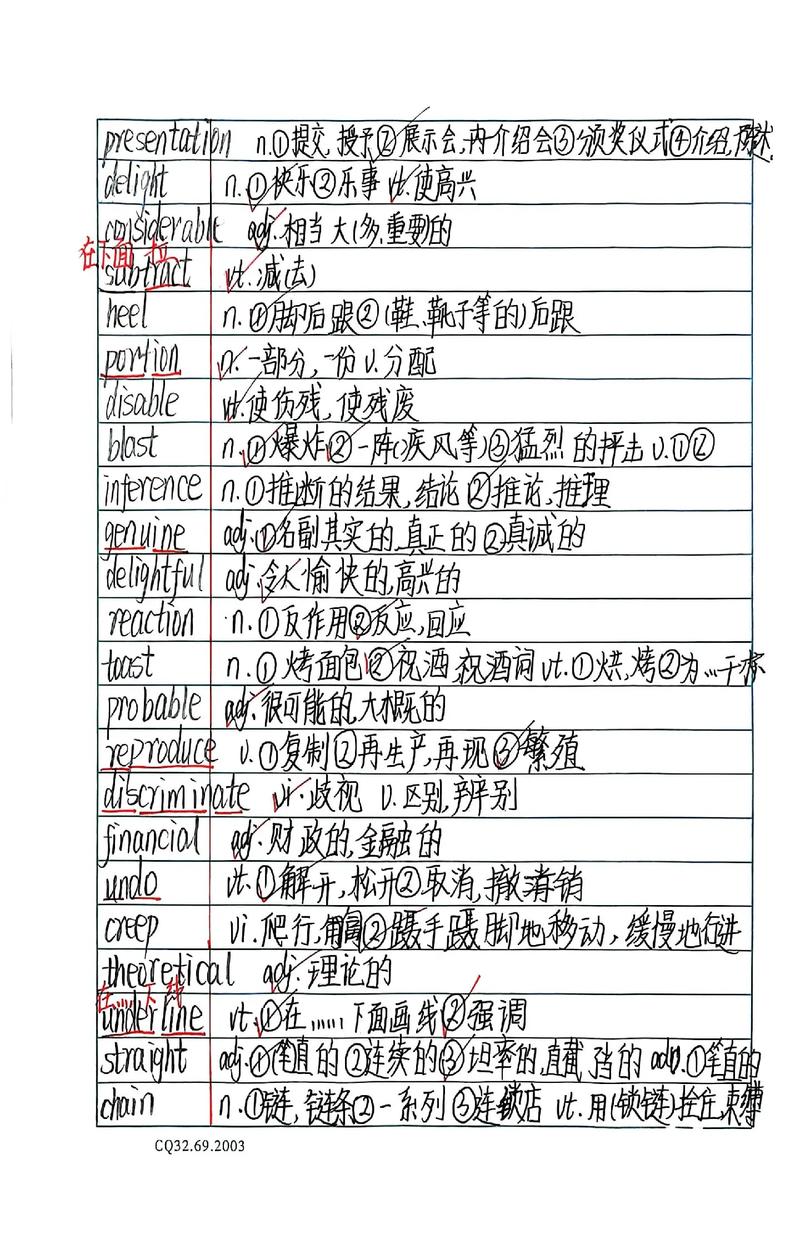 presentation n.①提交,授予②展示会,介绍会③颁奖仪式④介绍,陈述
delight n.①快乐②乐事 vt.使高兴
considerable adj.相当大(多,重要)的
在下面 拉
subtract vt.减(去)
heel n.①脚后跟②(鞋、靴子等的)后跟
portion n.一部分,一份 v.分配
disable vt.使伤残,使残废
blast n.①爆炸②一阵(疾风等)③猛烈的抨击 v.①②
inference n.①推断的结果,结论②推论,推理
genuine adj.①名副其实的,真正的②真诚的
delightful adj.令人愉快的,高兴的
reaction n.①反作用②反应,回应
toast n.①烤面包②祝酒,祝酒词 vt.①烘,烤②为…干杯
probable adj.很可能的,大概的
reproduce v.①复制②再生产,再现③繁殖
discriminate vi.歧视 v.区别,辨别
financial adj.财政的,金融的
undo vt.①解开,松开②取消,撤销
creep vi.爬行,②蹑手蹑脚地移动,缓慢地行进
theoretical adj.理论的
在……下 线
underline vt.①在……下面画线②强调
straight adj.①笔直的②连续的③坦率的,直截了当的 adv.①笔直的
chain n.①链,链条②一系列③连锁店 vt.用(锁链)拴住,束缚
CQ32.69.2003